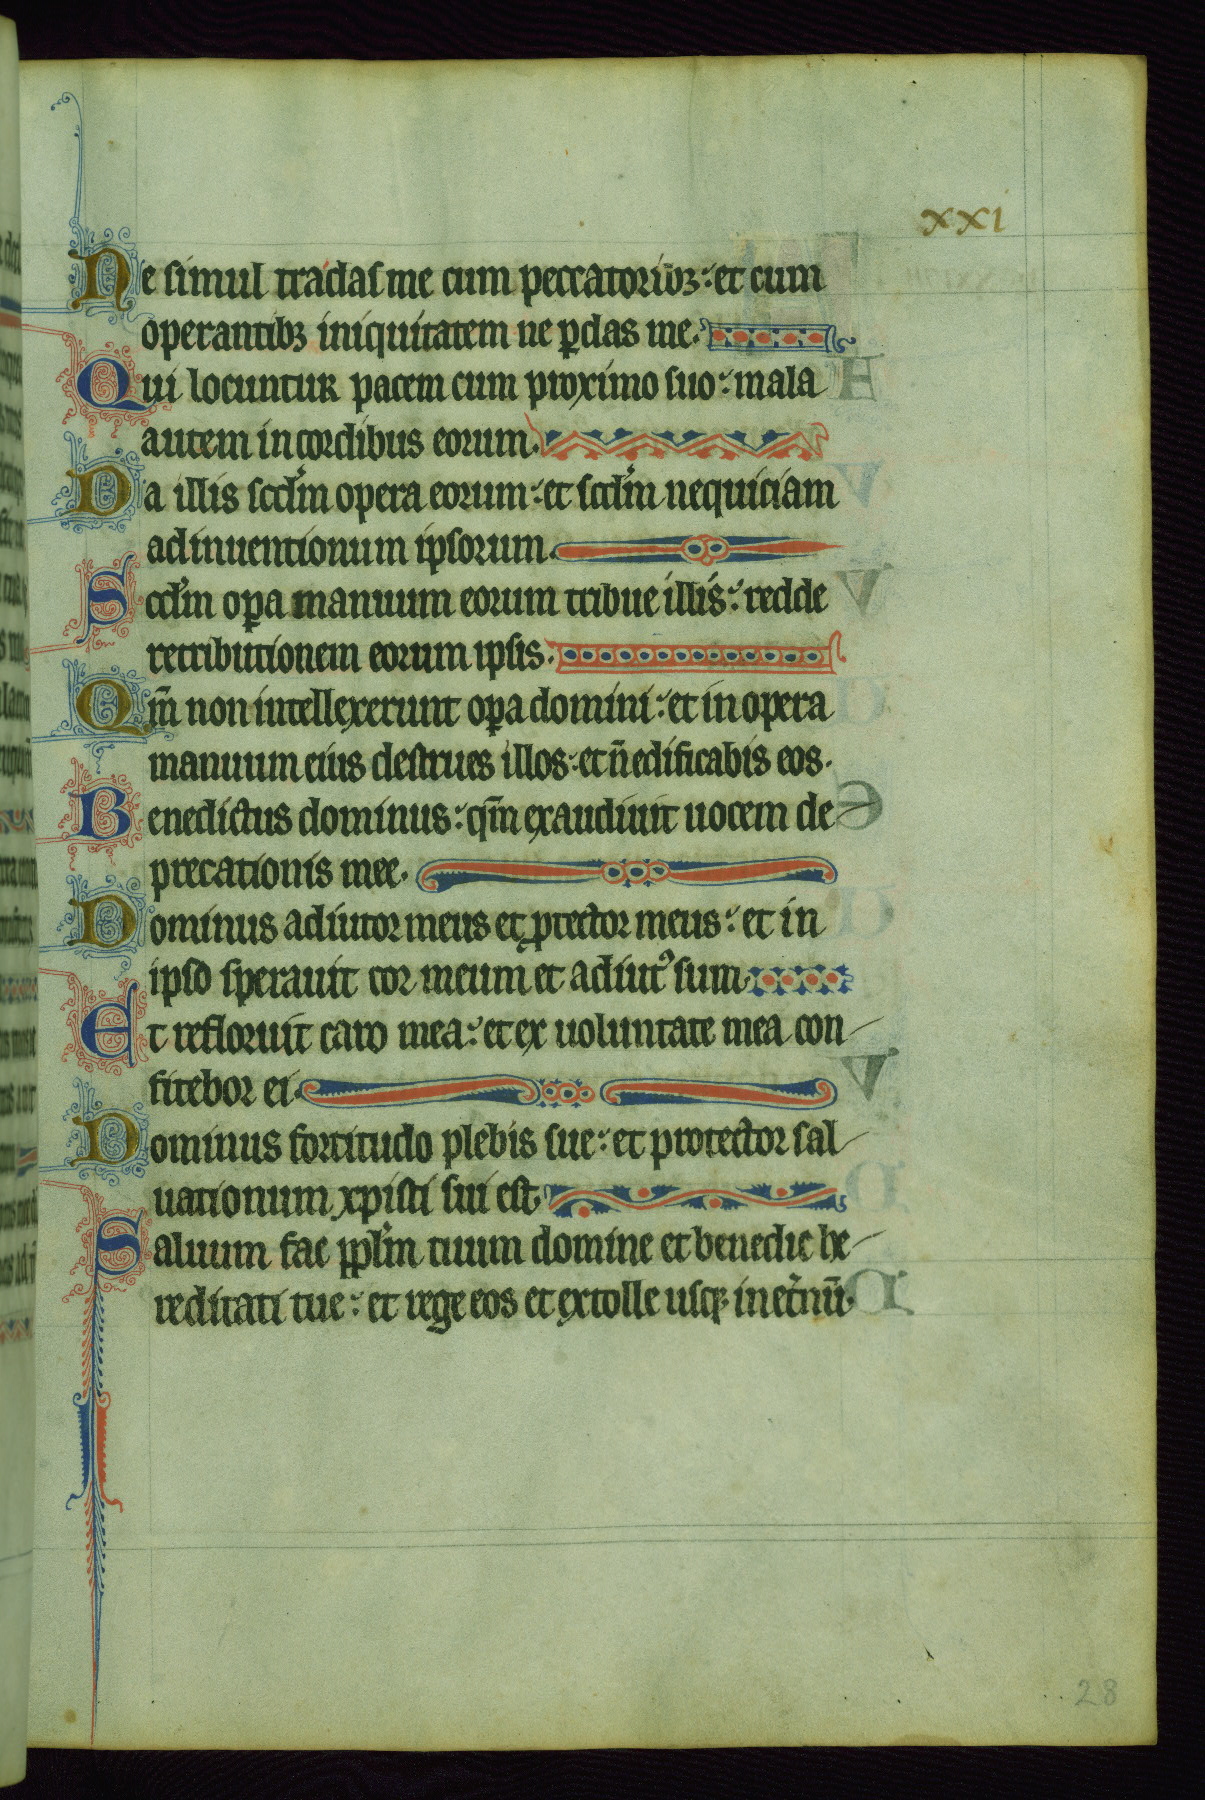 xxi
Ne simul tradas me cum peccatoribꝫ: et cum
operantibꝫ iniquitatem ne ꝑdas me.
Qui locuntur pacem cum proximo suo: mala
autem in cordibus eorum.
Da illis scd'm opera eorum: et scd'm nequiciam
adinuentionum ipsorum.
Scd'm oꝑa manuum eorum tribue illis: redde
retributionem eorum ipsis.
Qm̄ non intellexerunt oꝑa domini: et in opera
manuum eius destrues illos: et n̄ edificabis eos.
Benedictus dominus: qm̄ exaudiuit uocem de
precationis mee.
Dominus adiutor meus et ꝓtector meus: et in
ipso sperauit cor meum et adiutꝰ sum.
Et refloruit caro mea: et ex uoluntate mea con
fitebor ei.
Dominus fortitudo plebis sue: et protector sal
uationum xpisti sui est.
Saluum fac ppl'm tuum domine et benedic he
reditati tue: et rege eos et extolle usqꝫ in et'nū.
28